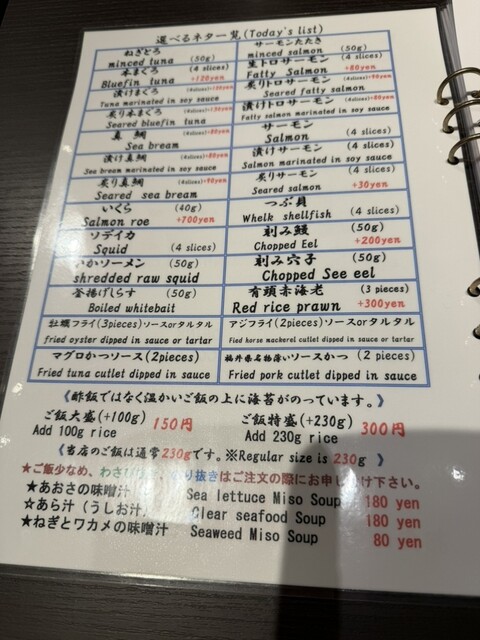 選べるネタ一覧(Today's list)
ねぎとろ
minced tuna (50g)
サーモンたたき
minced salmon (50g)
本まぐろ (4 slices)
Bluefin tuna +120yen
生トロサーモン (4 slices)
Fatty Salmon +80yen
漬けまぐろ (4slices)+180yen
Tuna marinated in soy sauce
炙りトロサーモン (4slices)+90yen
Seared fatty salmon
炙り本まぐろ (4slices)+130yen
Seared bluefin tuna
漬けトロサーモン (4slices)+80yen
Fatty salmon marinated in soy sauce
真鯛 (4slices)+80yen
Sea bream
サーモン
Salmon (4 slices)
漬け真鯛 (4slices)+80yen
Sea bream marinated in soy sauce
漬けサーモン (4 slices)
Salmon marinated in soy sauce
炙り真鯛 (4slices)+90yen
Seared sea bream
炙りサーモン (4 slices)
Seared salmon +30yen
いくら (40g)
Salmon roe +700yen
つぶ貝
Whelk shellfish (4 slices)
ソデイカ
Squid (4 slices)
刻み鰻 (50g)
Chopped Eel +200yen
いかソーメン (50g)
shredded raw squid
刻み穴子 (50g)
Chopped See eel
釜揚げしらす (50g)
Boiled whitebait
有頭赤海老 (3 pieces)
Red rice prawn +300yen
牡蠣フライ(3pieces)ソースorタルタル
fried oyster dipped in sauce or tartar
アジフライ(2pieces)ソースorタルタル
Fied horse mackerel cutlet dipped in sauce or tartar
マグロかつソース(2pieces)
Fried tuna cutlet dipped in sauce
福井県名物薄いソースかつ (2 pieces)
Fried pork cutlet dipped in sauce
《酢飯ではなく温かいご飯の上に海苔がのっています。》
ご飯大盛(+100g) 150円
Add 100g rice
ご飯特盛(+230g) 300円
Add 230g rice
《当店のご飯は通常230gです。※Regular size is 230g 》
★ご飯少なめ、わさび 抜きはご注文の際にお申し 下さい。
★あおさの味噌汁 Sea lettuce Miso Soup 180 yen
☆あら汁(うしお汁) Clear seafood Soup 180 yen
★ねぎとワカメの味噌汁 Seaweed Miso Soup 80 yen